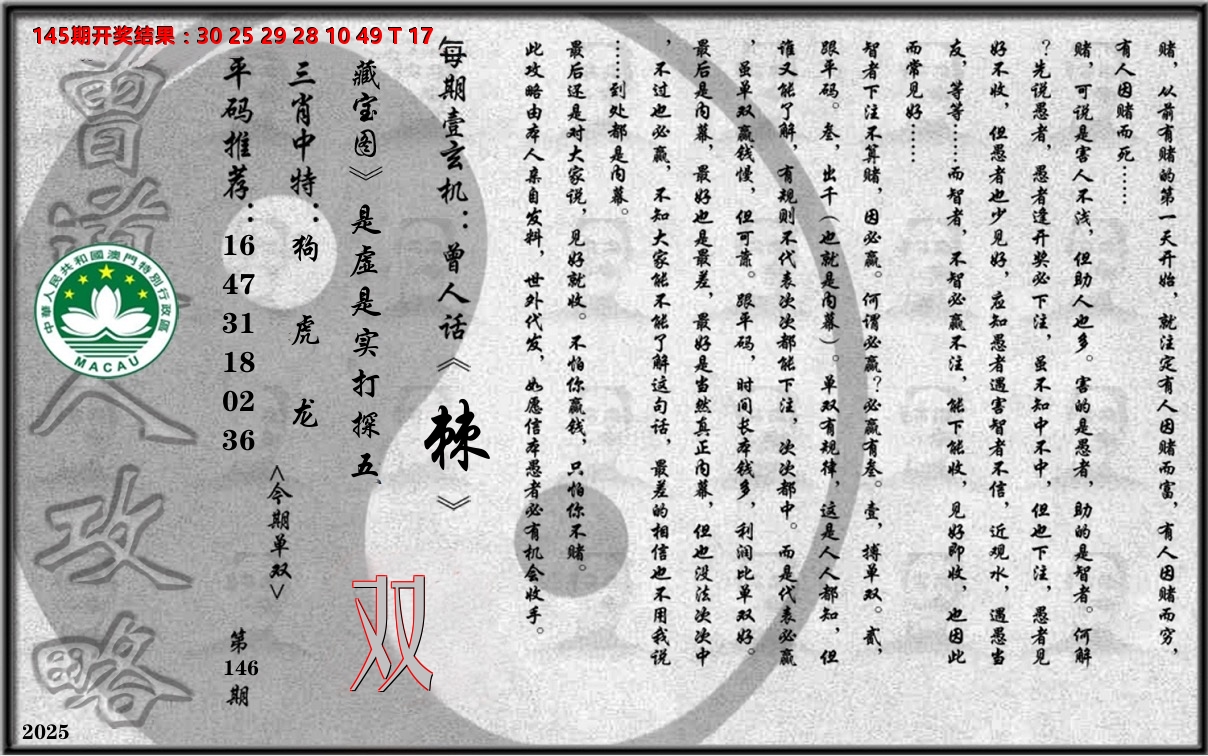 145期开奖结果：30 25 29 28 10 49 T 17
赌，从前有赌的第一天开始，就注定有人因赌而富，有人因赌而穷，
有人因赌而死……
赌，可说是害人不浅，但助人也多。害的是愚者，助的是智者。何解
？先说愚者，愚者逢开奖必下注，虽不知中不中，但也下注，愚者见
好不收，但愚者也少见好，应知愚者遇害智者不信，近观水，遇愚当
友，等等……而智者，不智必赢不注，能下能收，见好即收，也因此
而常见好……
智者下注不算赌，因必赢。何谓必赢？必赢有叁。壹，搏单双。贰，
跟平码。叁，出千（也就是内幕）。单双有规律，这是人人都知，但
谁又能了解，有规则不代表次次都能下注，次次都中。而是代表必赢
，虽单双赢钱慢，但可靠。跟平码，时间长本钱多，利润比单双好。
最后是内幕，最好也是最差，最好是当然真正内幕，但也没法次次中
，不过也必赢，不知大家能不能了解这句话，最差的相信也不用我说
……到处都是内幕。
最后还是对大家说，见好就收。不怕你赢钱，只怕你不赌。
此攻略由本人亲自发料，世外代发，如愿信本愚者必有机会收手。
每期壹玄机：曾人话《棘》
藏宝图》是虚是实打探五
双
三肖中特：狗 虎 龙
<今期单双>
平码推荐：16 47 31 18 02 36
第146期
曾道人攻略
中華人民共和國澳門特別行政區
MACAU
2025